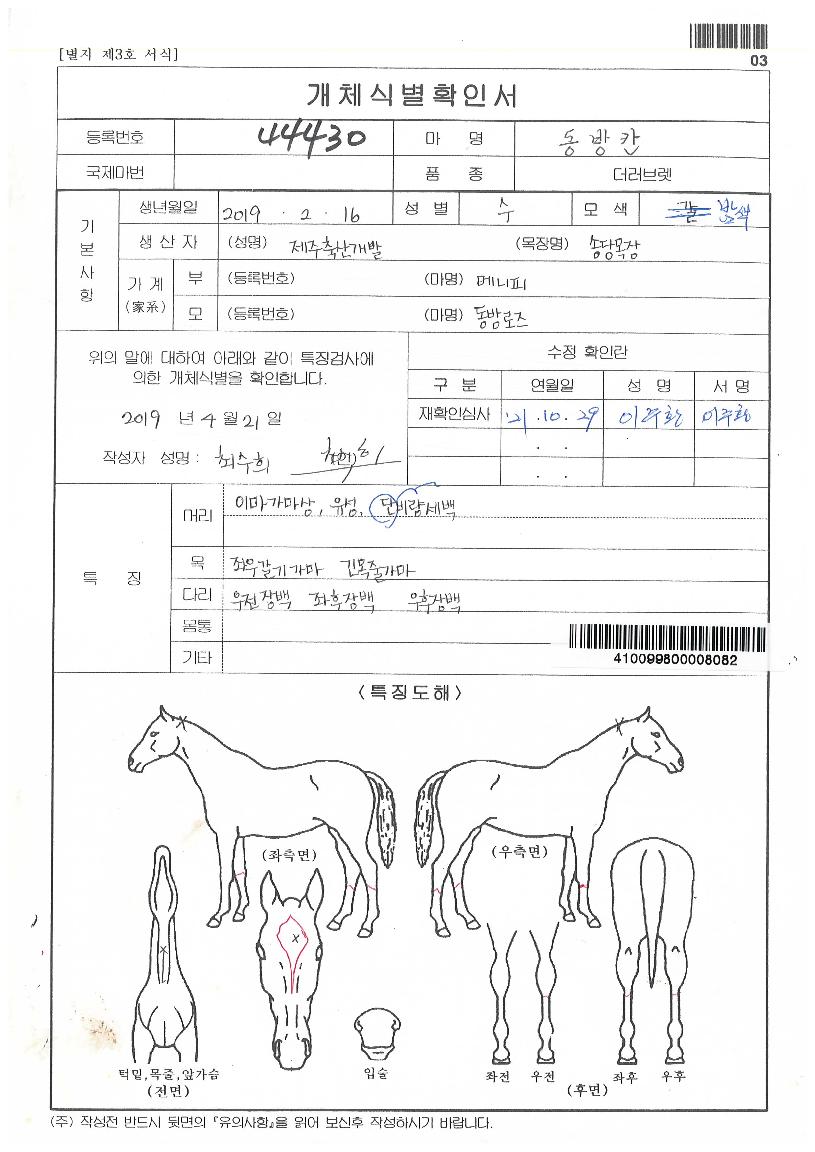 [별지 제3호 서식]
03
개체식별확인서
등록번호 44430 마 명 동방칸
국제마번 품 종 더러브렛
기본사항
생년월일 2019 . 2 . 16 성 별 수 모 색 갈 밤색
생 산 자 (성명) 제주축산개발 (목장명) 송당목장
가 계 (家系)
부 (등록번호) (마명) 메니피
모 (등록번호) (마명) 동방로즈
위의 말에 대하여 아래와 같이 특징검사에
의한 개체식별을 확인합니다.
2019 년 4 월 21 일
작성자 성명 : 최수희
수정 확인란
구 분 연월일 성 명 서 명
재확인심사 '21 .10 . 29 이주환 이주환
. .
. .
특 징
머리 이마가마상, 유성, 단비량세백
목 좌우갈기가마 긴목줄가마
다리 우전장백 좌후장백 우후장백
몸통
기타
410099800008082
<특징도해>
(좌측면) (우측면)
턱밑,목줄,앞가슴
(전면)
입술
좌전 우전 좌후 우후
(후면)
(주) 작성전 반드시 뒷면의 『유의사항』을 읽어 보신후 작성하시기 바랍니다.